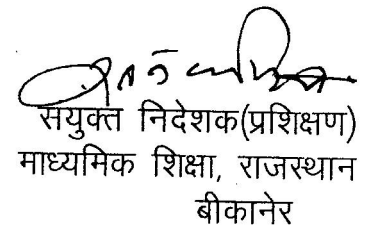 सयुक्त निदेशक(प्रशिक्षण)
माध्यमिक शिक्षा, राजस्थान
बीकानेर